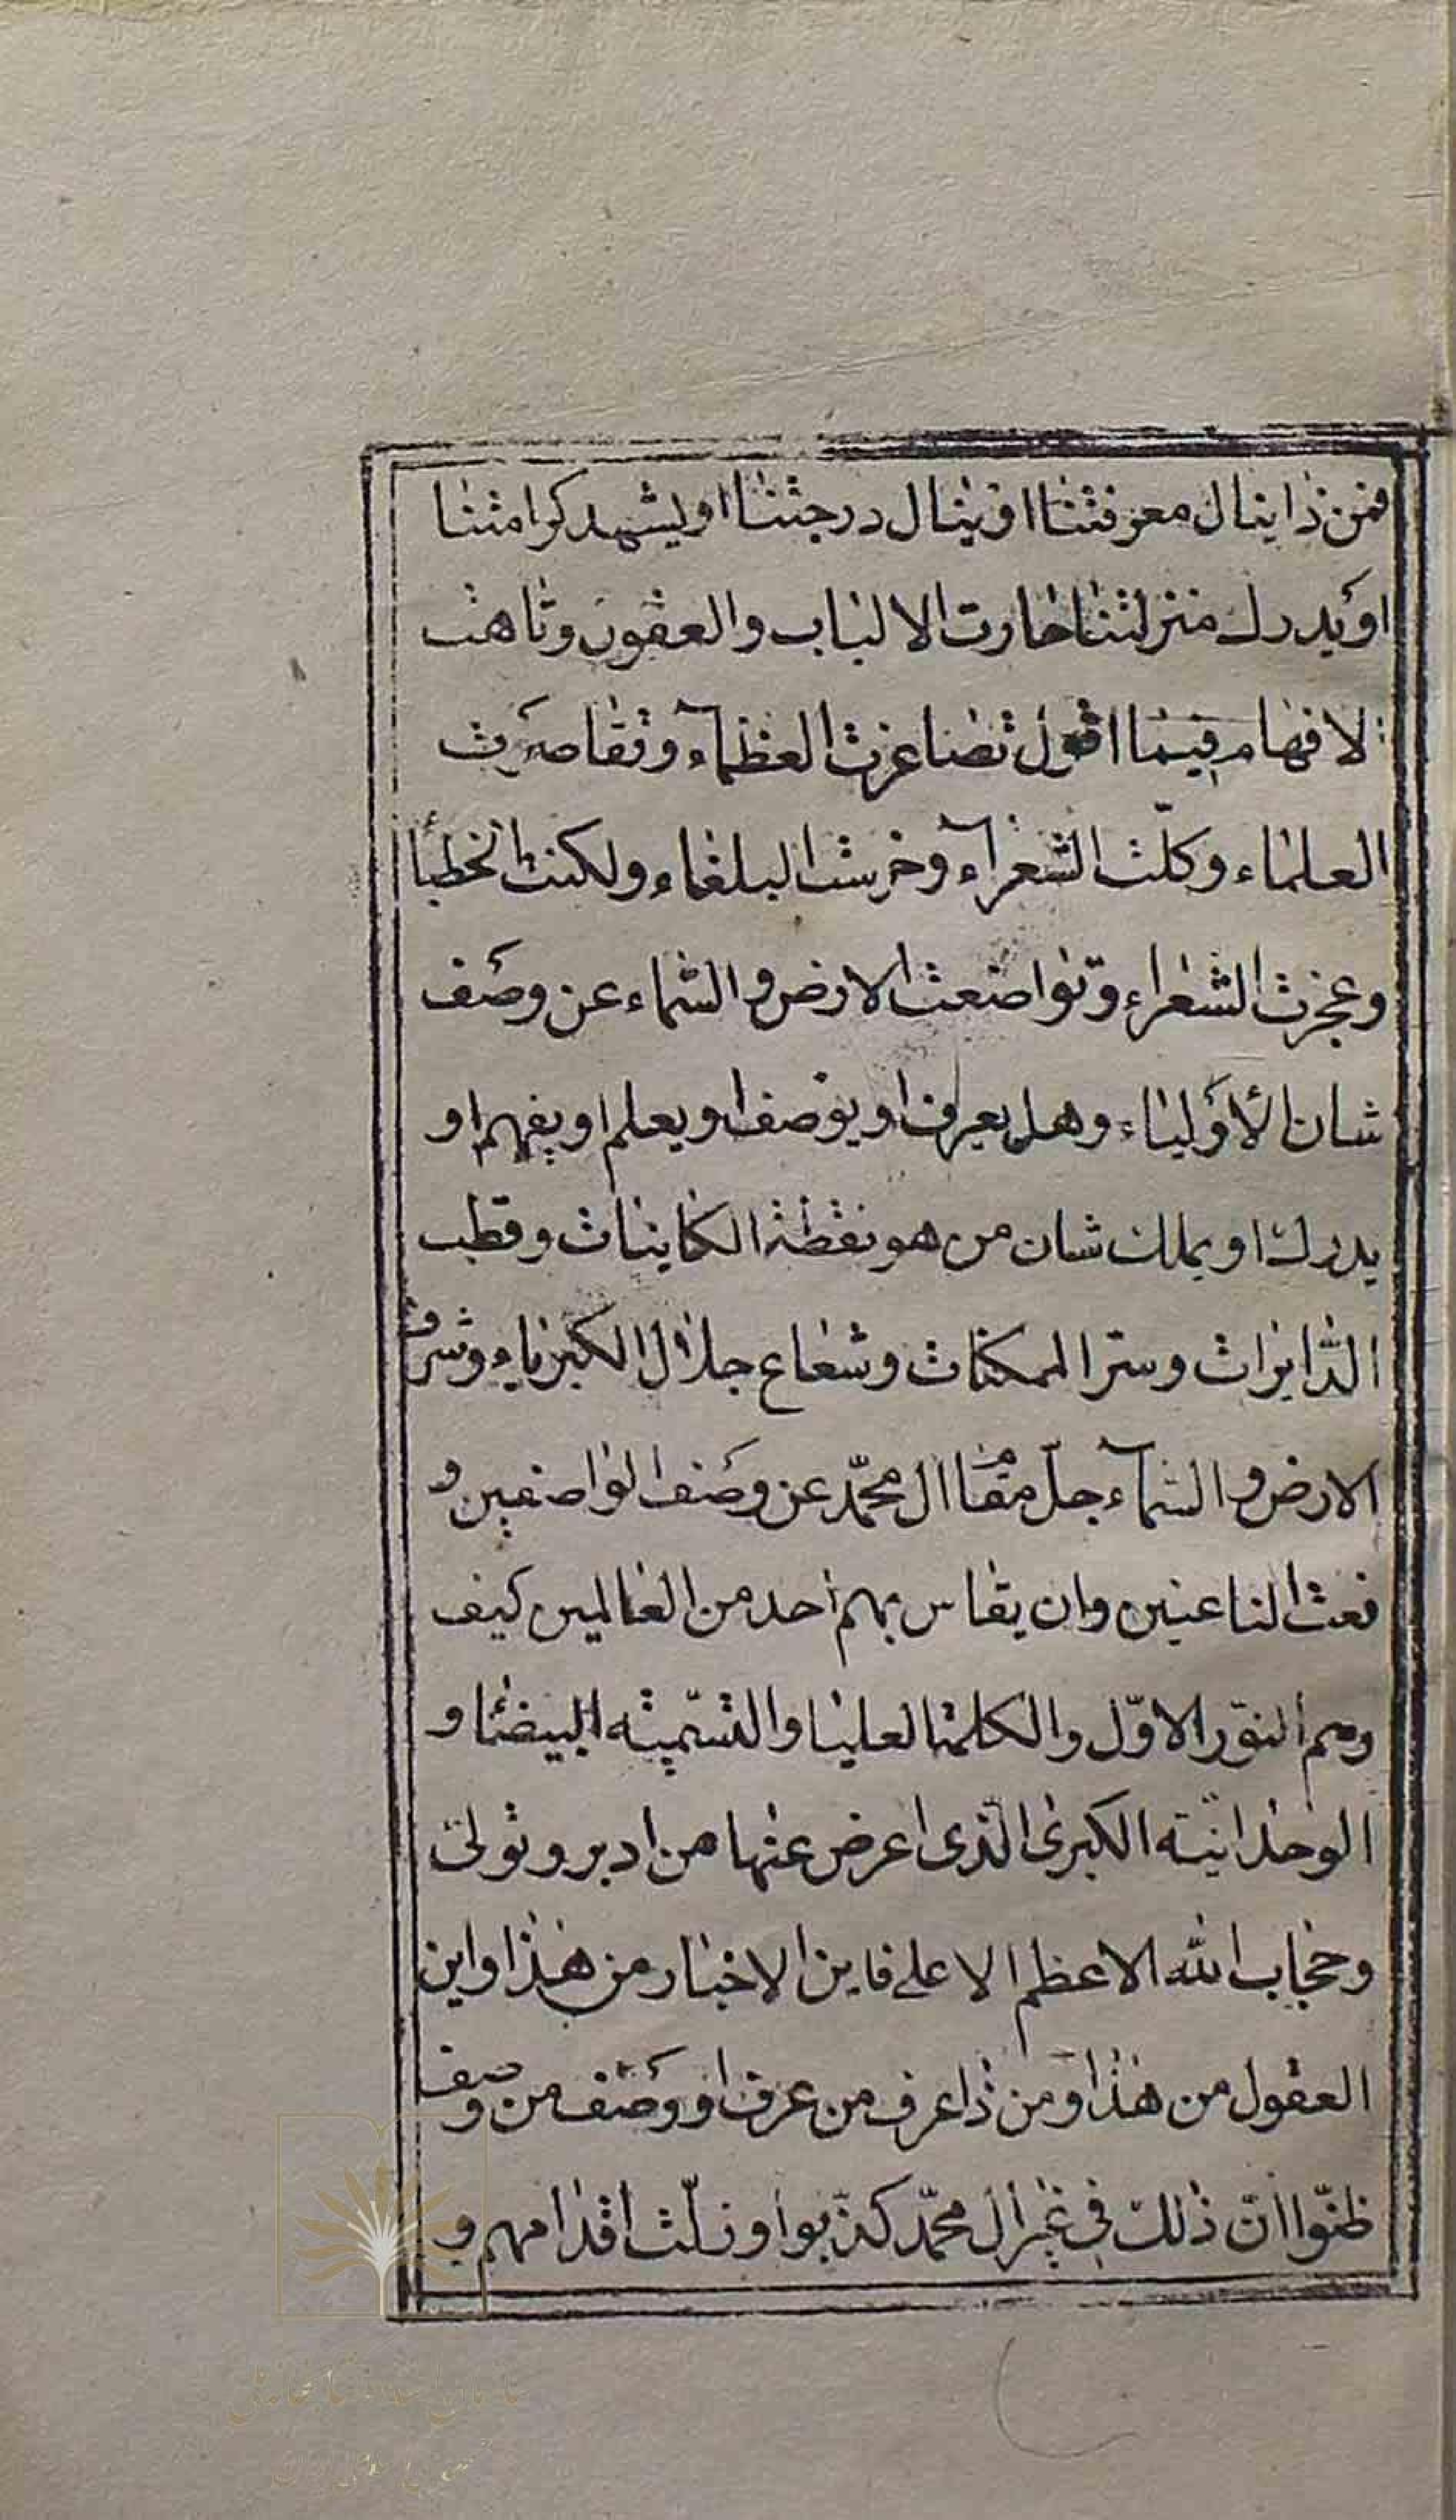 فمن ذا ينال معرفتنا او ينال درجتنا او يشهد كرامتنا
او يدرك منزلتنا حارت الالباب والعقول وتاهت
الافهام فيما اقول تصاغرت العظمآء وتقاصرت
العلماء وكلّت الشعرآء وخرست البلغاء ولكنت الخطبا
وعجزت الشعراء وتواضعت الارض والسّماء عن وصف
شان الأولياء وهل يعرف او يوصف او يعلم او يفهم او
يدرك او يملك شان من هو نقطة الكاينات وقطب
الدّايرات وسرّ الممكنات وشعاع جلال الكبرياء وشرف
الارض والسّمآء جلّ مقام ال محمّد عن وصف الواصفين و
نعت الناعتين وان يقاس بهم احد من العالمين كيف
وهم النوّر الاوّل والكلمة العليا والتّسميّه البيضاء و
الوحدانيّه الكبرىٰ الّذى اعرض عنها من ادبر وتولىٰ
وحجاب اللّه الاعظم الاعلى فاين الاخبار من هذا واين
العقول من هذا ومن ذا عرف من عرف او وصف من وصف
ظنّوا انّ ذلك فى غير ال محمّد كذّبوا وزلّت اقدامهم و